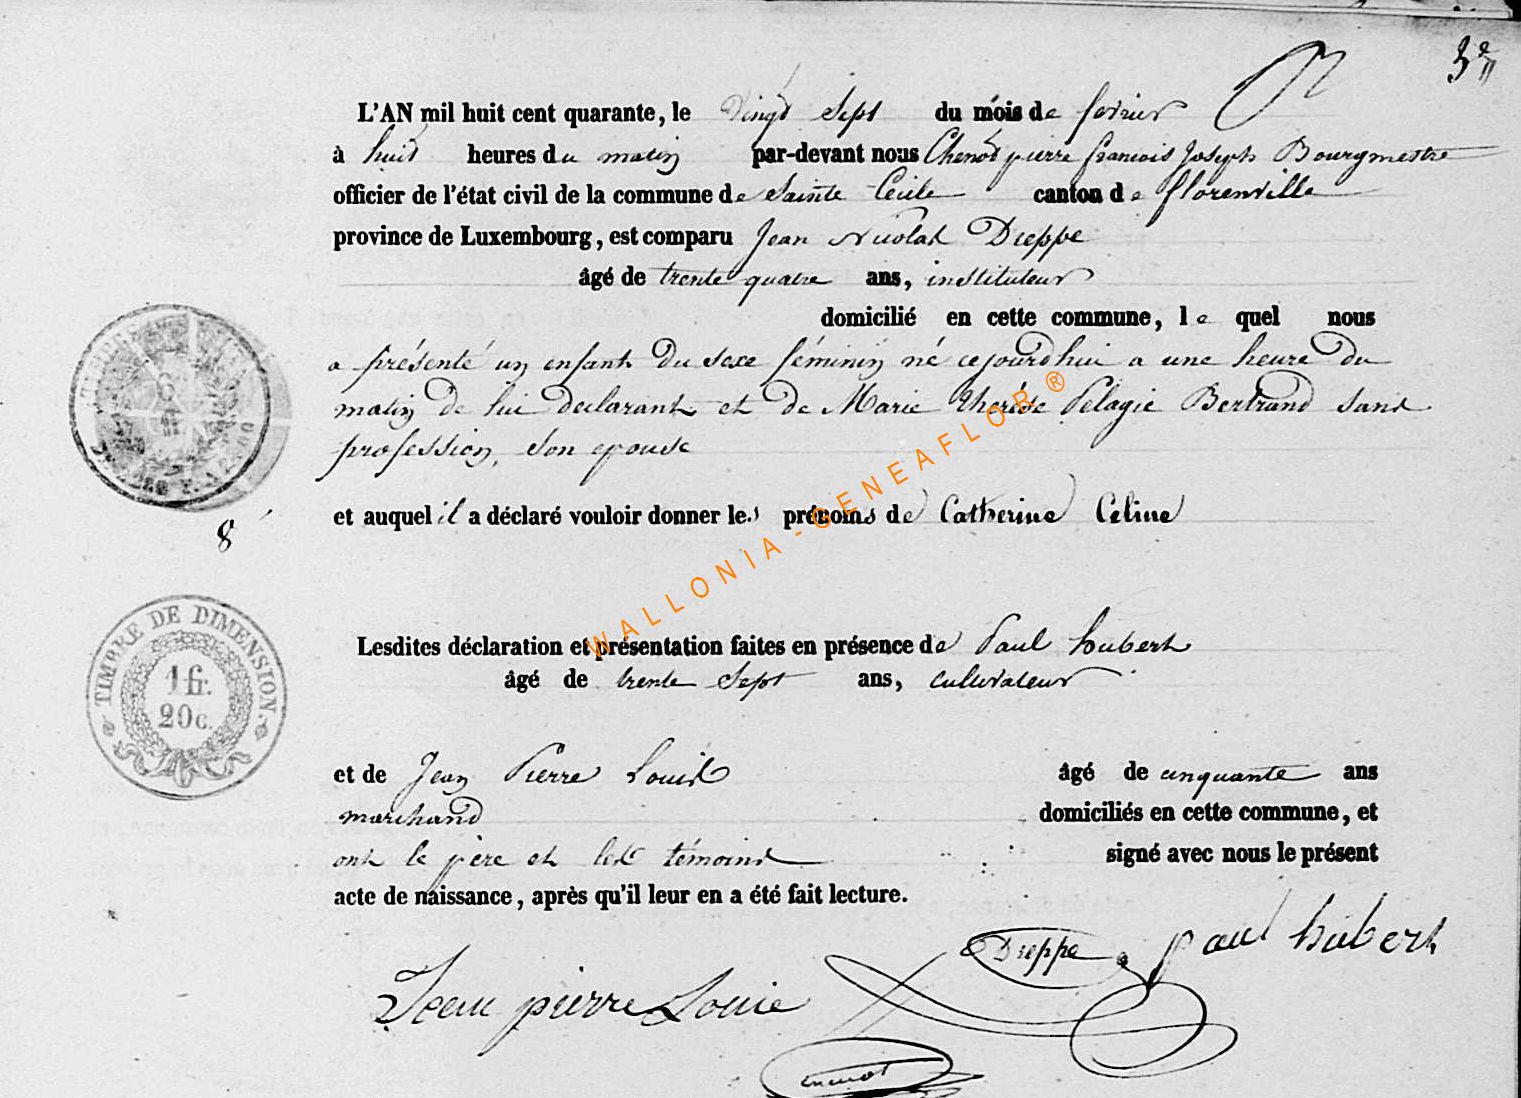 3e
L'AN mil huit cent quarante, le vingt sept du mois de fevrier
à huit heures du matin par-devant nous Chenot pierre francois Joseph Bourgmestre
officier de l'état civil de la commune de Sainte Cecile canton de florenville
province de Luxembourg, est comparu Jean Nicolas Dieppe
âgé de trente quatre ans, instituteur
domicilié en cette commune, le quel nous
a présenté un enfant du sexe féminin né cejourdhui a une heure du
matin de lui declarant et de Marie Therése Pélagie Bertrand sans
profession, son epouse
et auquel il a déclaré vouloir donner les prénoms de Catherine Céline
8
TIMBRE DE DIMENSION.
1 fr.
20c.
Lesdites déclaration et présentation faites en présence de Paul hubert
âgé de trente sept ans, cultivateur
et de Jean Pierre Louis âgé de cinquante ans
marchand domiciliés en cette commune, et
ont le père et les témoins signé avec nous le présent
acte de naissance, après qu'il leur en a été fait lecture.
Dieppe paul hubert
Jean pierre Louis
chenot
WALLONIA-GENEAFLOR®